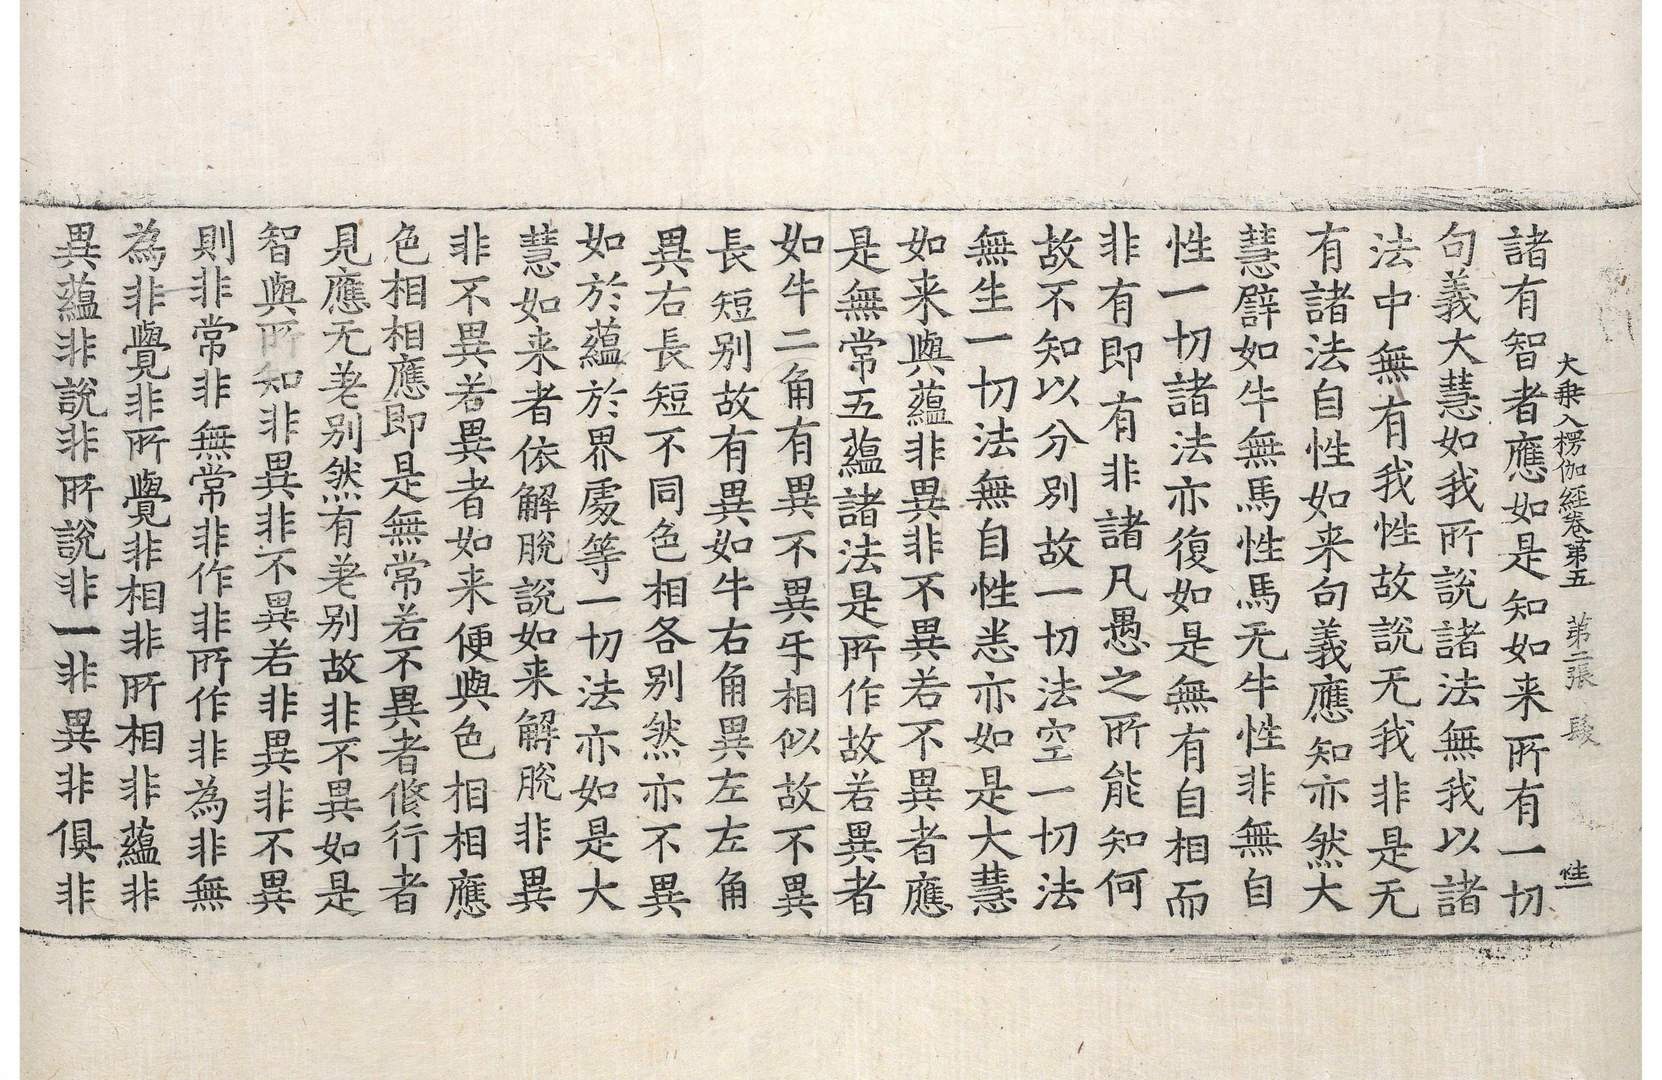 大乗入楞伽經卷第五 第二張 性
諸有智者應如是知如来所有一切
句義大慧如我所說諸法無我以諸
法中無有我性故說无我非是无
有諸法自性如来句義應知亦然大
慧譬如牛無馬性馬无牛性非無自
性一切諸法亦復如是無有自相而
非有即有非諸凡愚之所能知何
故不知以分別故一切法空一切法
無生一切法無自性悉亦如是大慧
如来與蘊非異非不異若不異者應
是無常五蘊諸法是所作故若異者
如牛二角有異不異㸦相似故不異
長短別故有異如牛右角異左左角
異右長短不同色相各別然亦不異
如於蘊於界處等一切法亦如是大
慧如来者依解脫說如来解脫非異
非不異若異者如来便與色相相應
色相相應即是無常若不異者修行者
見應无差別然有差別故非不異如是
智與所知非異非不異若非異非不異
則非常非無常非作非所作非為非無
為非覺非所覺非相非所相非蘊非
異蘊非說非所說非一非異非俱非